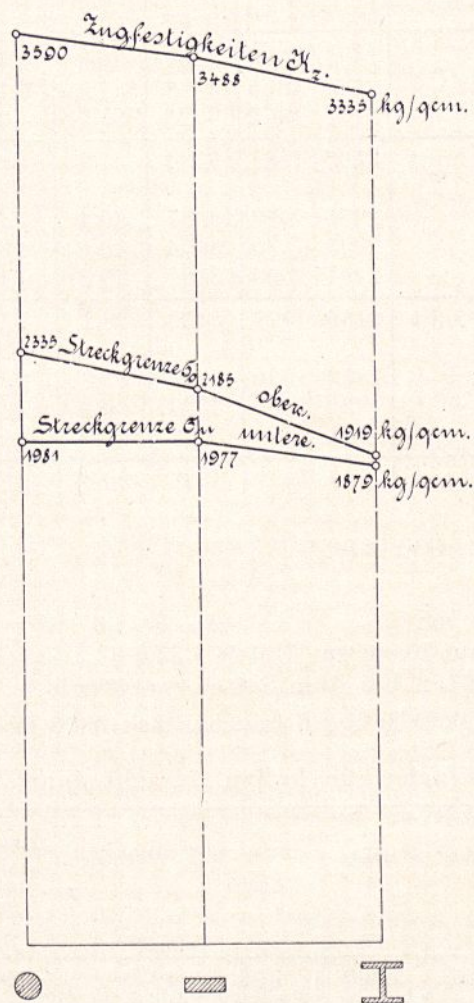 Zugfestigkeiten Kz.
3590
3488
3335 kg/qcm.
2335 Streckgrenze σo 2185 obere.
1919 kg/qcm.
Streckgrenze σu untere.
1981
1977
1879 kg/qcm.